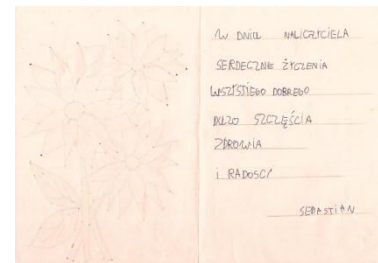 W DNIU NAUCZYCIELA
SERDECZNE ŻYCZENIA
WSZYSTIEGO DOBREGO
DUŻO SZCZĘŚCIA
ZDROWIA
i RADOSCI
SEBASTIAN